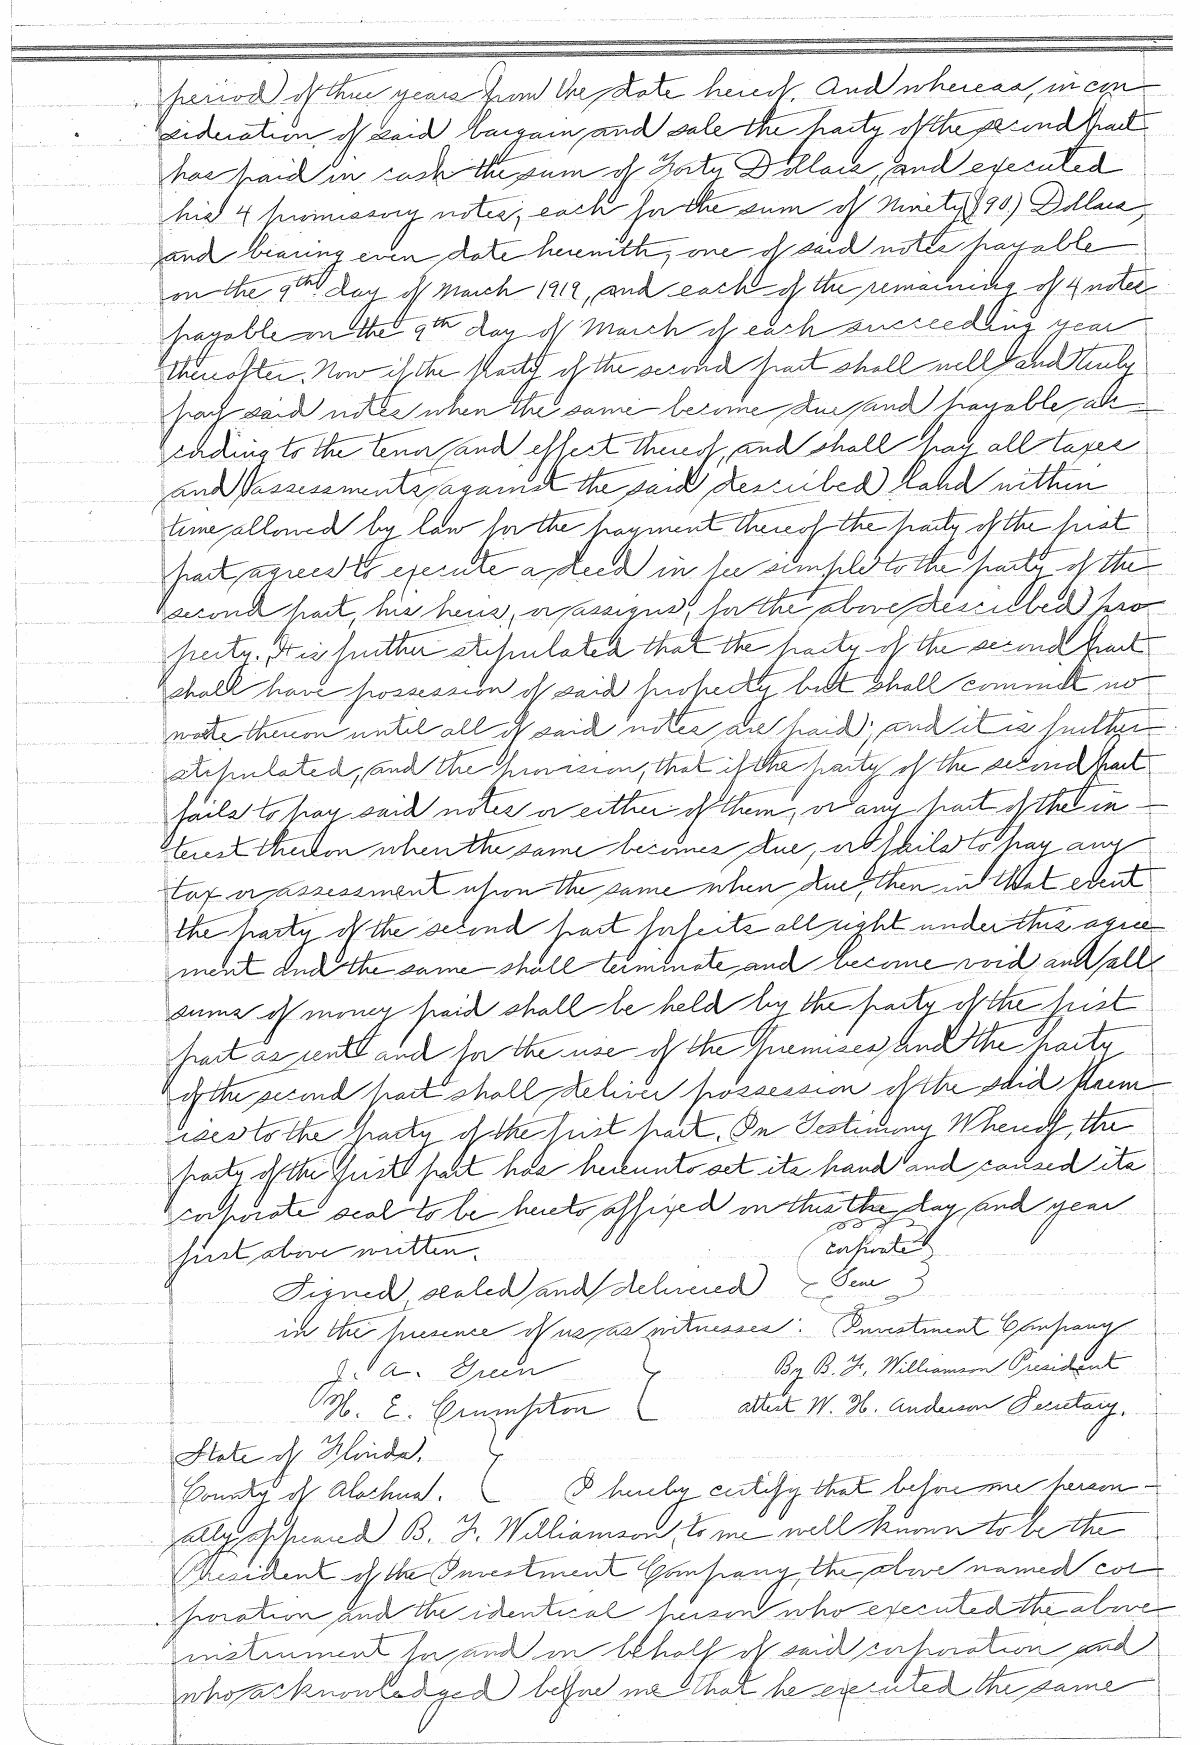 period of three years from the date hereof. And whereas, in con-
sideration of said bargain and sale the party of the second part
has paid in cash the sum of Forty Dollars, and executed
his 4 promissory notes, each for the sum of Ninety (90.) Dollars,
and bearing even date herewith, one of said notes payable
on the 9th day of March 1919, and each of the remaining of 4 notes
payable on the 9th day of March of each succeeding year
thereafter. Now if the party of the second part shall well and truly
pay said notes when the same become due and payable, ac-
cording to the tenor and effect thereof, and shall pay all taxes
and assessments against the said described land within
time allowed by law for the payment thereof the party of the first
part agrees to execute a deed in fee simple to the party of the
second part, his heirs, or assigns, for the above described pro-
perty. It is further stipulated that the party of the second part
shall have possession of said property but shall commit no
waste thereon until all of said notes are paid; and it is further
stipulated, and the provision, that if the party of the second part
fails to pay said notes or either of them, or any part of the in-
terest thereon when the same becomes due, or fails to pay any
tax or assessment upon the same when due, then in that event
the party of the second part forfeits all right under this agree-
ment and the same shall terminate and become void and all
sums of money paid shall be held by the party of the first
part as rent and for the use of the premises, and the party
of the second part shall deliver possession of the said prem-
ises to the party of the first part. In Testimony Whereof, the
party of the first part has hereunto set its hand and caused its
corporate seal to be hereto affixed on this the day and year
first above written. (Corporate)
Signed, sealed and delivered Seal
in the presence of us as witnesses: Investment Company
J. A. Green By B. F. Williamson President
H. E. Crumpton attest W. H. Anderson Secretary.
State of Florida,
County of Alachua. I hereby certify that before me person-
ally appeared B. F. Williamson, to me well known to be the
President of the Investment Company, the above named cor-
poration and the identical person who executed the above
instrument for and on behalf of said corporation and
who acknowledged before me that he executed the same